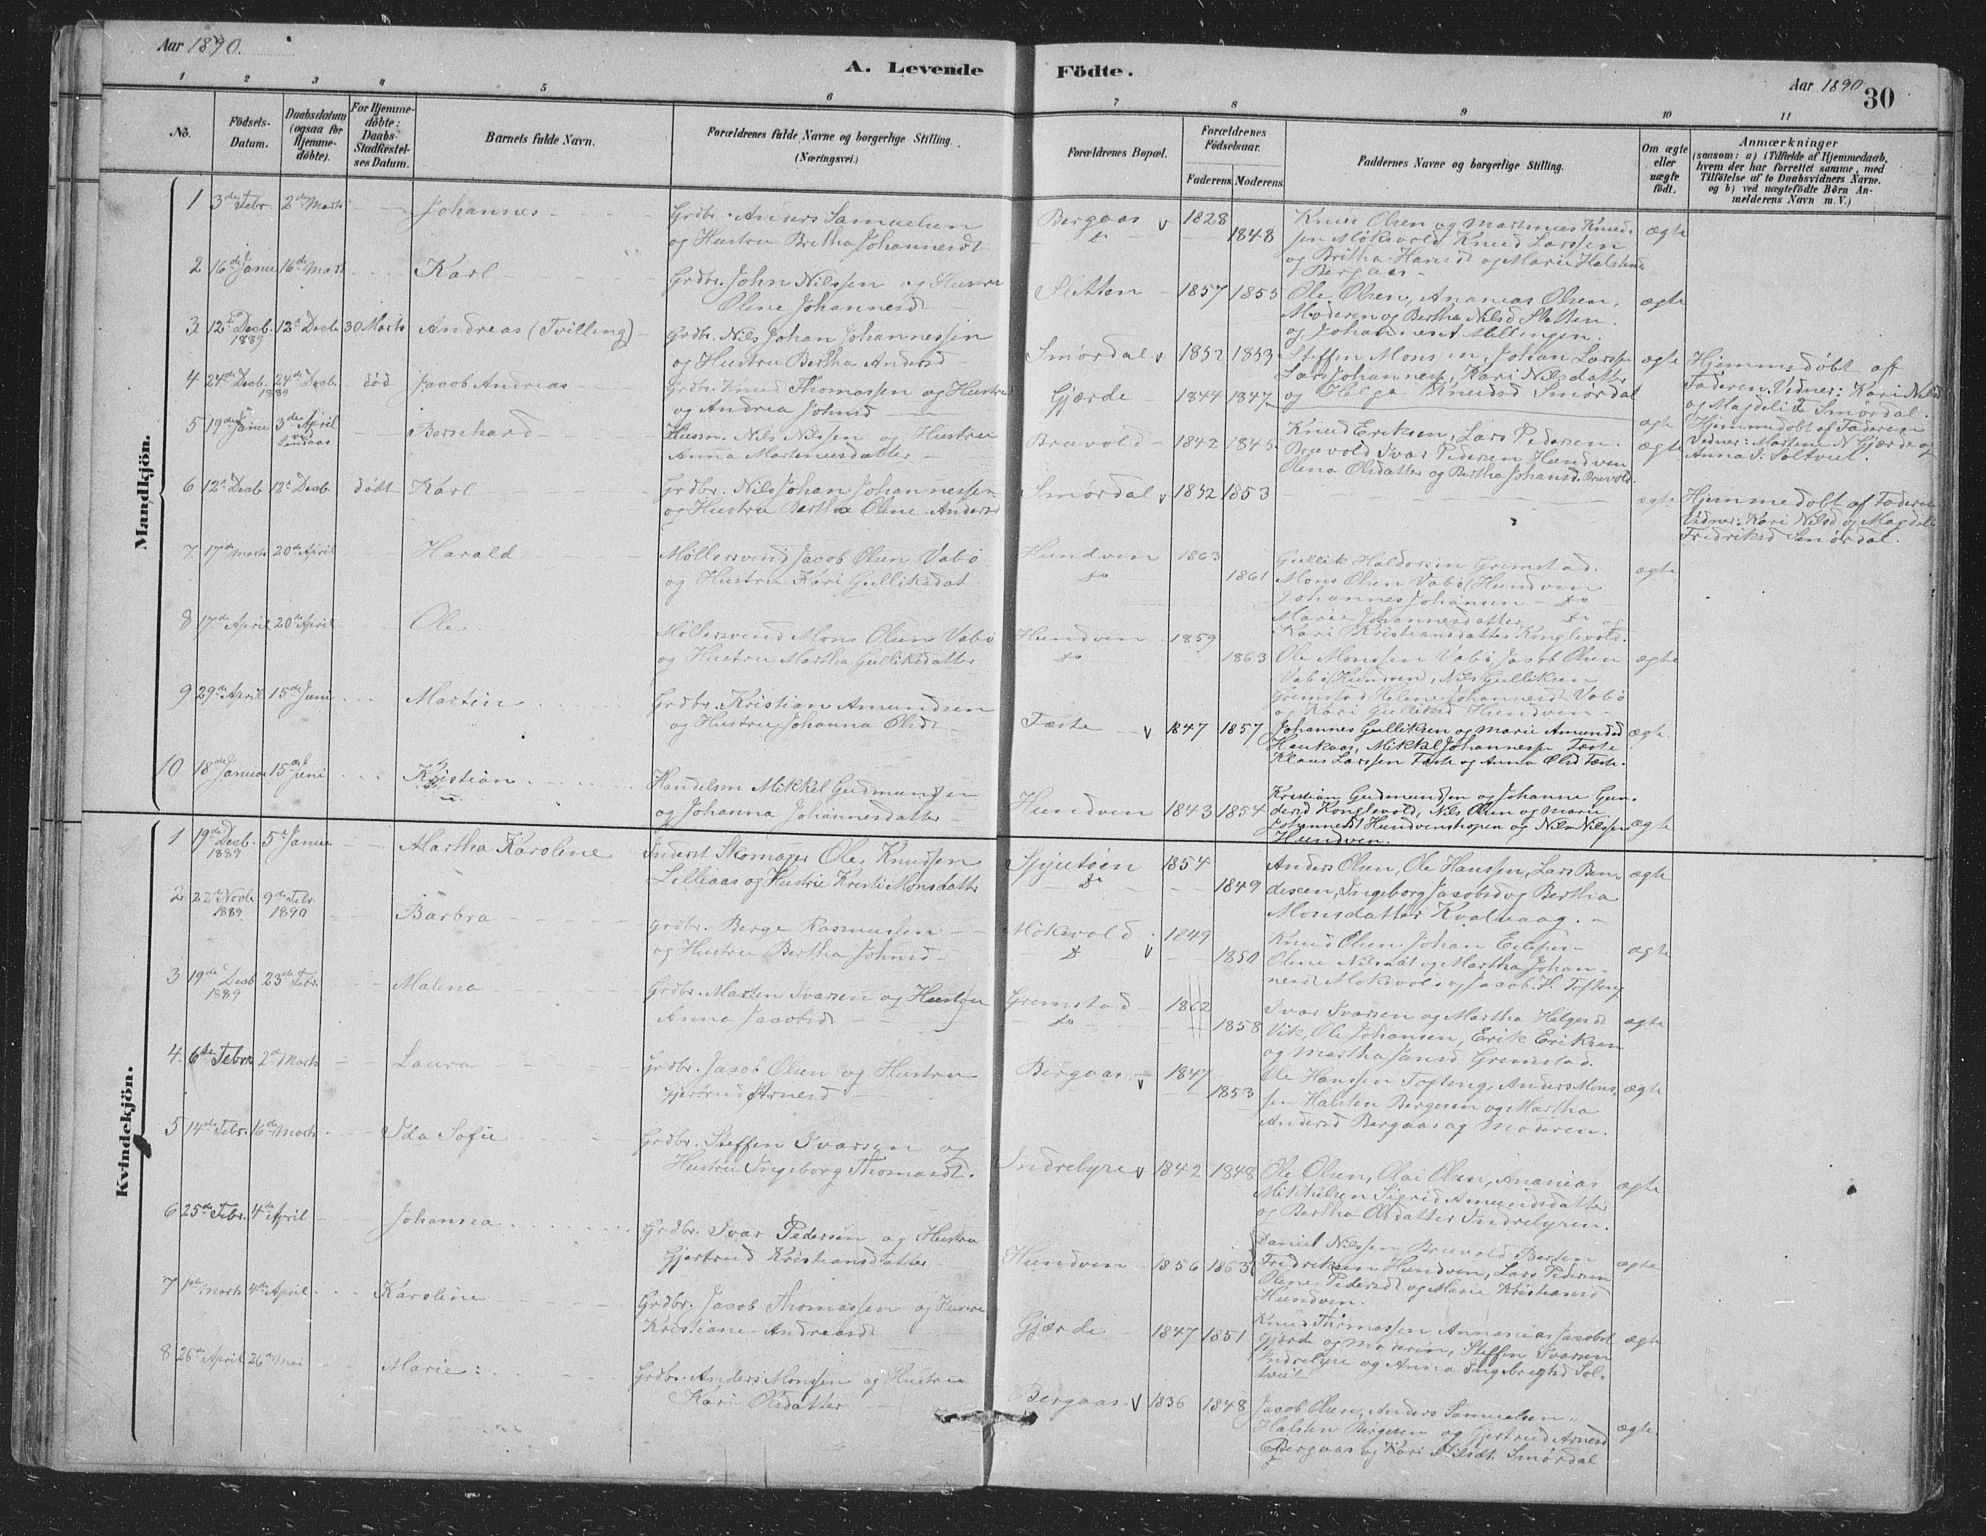 Aar 1890.
A. Levende Födte.
Aar 1890
30
1 2 3 4 5 6 7 8 9 10 11
No.
Födsels-Datum.
Daabsdatum (ogsaa for Hjemmedöbte).
For Hjemmedöbte: Daabs-Stadfæstelses Datum.
Barnets fulde Navn.
Forældrenes fulde Navne og borgerlige Stilling. (Næringsvei.)
Forældrenes Bopæl.
Forældrenes Födselsaar.
Faderens. Moderens.
Faddernes Navne og borgerlige Stilling.
Om ægte eller uægte födt.
Anmærkninger
(saasom: a) i Tilfælde af Hjemmedaab,
hvem der har forrettet samme, med
Tilföielse af to Daabsvidners Navne,
og b) ved uægtefödte Börn An-
melderens Navn m. V.)
Mandkjön.
1 3de Febr. 2de Marts Johannes Grdbr. Anders Samuelsen
og Hustru Britha Johannesdt.
Bergaas 1828 1848
Knud Olsen og Martinus Knud-
sen Mökevold Knud Larssen
og Britha Hansd og Marie Halstens
Bergaas
ægte
2 16de Janu 16de Marts Karl Grdbr. John Nilssen og Hustru
Oline Johannesd
Sletten 1857 1855
Ole Olsen, Ananias Olsen,
Moderen og Bertha Nilsd Sletten
ægte
3 12te Decb. 1889 12te Decb. 30 Marts Andreas (Tvilling)
Grdbr. Nils Johan Johannessen
og Hustru Bertha Andersd
Smördal 1852 1853
Steffen Monsen, Johan Larss.
Lars Johanness, Kari Nilsdatter
og Helga Knudsd Smördal
ægte
Hjemmedöbt af
Faderen. Vidner: Kari Nilsd
Smördal.
4 24de Decb. 1889 24de Decb. död Jacob Andreas
Grdbr. Knud Thomassen og Hustru
og Andrea Johnsd
Gjærde 1844 1847
ægte
Hjemmedöbt af Faderen
Vidner: Martene N Gjærde og
Anna I. Soltveit.
5 19de Janu 3de April Bernhard
Husm. Nils Nilssen og Hustru
Anna Martinusdatter
Bruvold 1842 1845
Knud Eriksen, Lars Pedersen
Bruvold Ivar Pedersen Hundven
Olena Olsdatter og Bertha Johansd. Bruvold
ægte
6 12te Decb. 12te Decb. dödt Karl
Grdbr. Nils Johan Johannessen
og Hustru Bertha Oline Andersd
Smördal 1852 1853
ægte
Hjemmedöbt af Faderen
Vidner: Kari Nilsd og Magdeli
Fredriksd Smördal.
7 17de Marts 20de April Harald
Möllersvend Jacob Olsen Vabö
og Hustru Kari Gulliksdat
Hundven do 1863 1861
Gullik Haldorsen Gremstad
Mons Olsen Vabö/Hundven
Johannes Johansen do
Marie Johannesdatter do og
Kari Kristiansdatter Konglevold.
ægte
8 17de April 20de April Ole
Möllersvend Mons Olsen Vabö
og Hustru Martha Gulliksdatter
Hundven do 1859 1863
Ole Monssen Vabö, Jacob Olsen
Vabö/Hundven, Nils Gulliksen
Gremstad Helene Johannesdt Vabö
og Kari Gulliksd Hundven
ægte
9 29de April 15de Juni Martin
Grdbr. Kristian Amundsen
og Hustru Johanna Olsdt
Tæste 1847 1857
Johannes Gulliksen og Marie Amundsd
Haukaas, Mikkel Johannessen Tæste
Klaus Larssen Tæste og Anna Olsd Tæste.
ægte.
10 18de Januar 15de Juni Kristian
Handelsm Mikkel Gudmundsen
og Johanna Johannesdatter
Hundven 1843 1854
Kristian Gudmundsen og Johanne Gun-
dersd Konglevold, Nils Olsen og Marie
Johannesdt Hundvenshopen og Nils Nilssen
Hundven.
ægte
Kvindekjön.
1 19de Decb. 1889 5te Januar Martha Karoline
Inderst Skomager Ole Knudsen
Lilleaas og Hustru Kristi Monsdatter
do 1854 1849
Anders Olsen, Ole Hanssen, Lars Ben-
dixen, Ingeborg Jacobsd og Bertha
Monsdatter Kvalvaag.
ægte
2 22de Novb. 1889 9de Febr. 1890 Barbra
Grdbr. Berge Rasmussen
og Hustru Bertha Johnsd
Mökevold do 1849 1850
Knud Olsen, Johan
Oline Nilsdat og Martha Johan-
nesd Mökevold og Jacob H. Tofting
ægte
3 19de Decb 1889 23de Febr. Malena
Grdbr. Marten Ivarsen og Hustru
Anna Jacobsd
Gremstad do 1862 1858
Ivar Ivarsen og Martha Helgesd
Vik, Ole Johansen, Erik Eriksen
og Martha Jansd Gremstad.
ægte
4 6te Febru 2de Marts Laura
Grdbr. Jacob Olsen og Hustru
Gjertrud Arnesd
Bergaas 1847 1853
Ole Hanssen Tofting, Anders Mons-
sen Halsten Bergesen og Martha
Andersd Bergaas og Moderen.
ægte
5 14de Febr. 16de Marts Ida Sofie
Grdbr. Steffen Ivarsen og
Hustru Ingeborg Thomasdt.
Indrebyre 1842 1848
Ole Olsen, Olai Olsen, Ananias
Mikkelsen Sigrid Amundsdatter
og Bertha Olsdatter Indrebyren.
ægte
6 25de Febr. 4de April Johanna
Grdbr. Ivar Pedersen og Hustru
Gjertrud Kristiansdatter
Hundven 1856 1863
Daniel Nilssen Bruvold Bertin
Fredriksen Hundven, Lars Pedersen
Oline Pedersdt og Marie Kristiansd
Hundven.
ægte
7 1ste Marts 4de April Karoline
Grdbr. Jacob Thomassen og Hustru
Kristiane Andreasdt
Gjærde 1847 1851
Knud Thomassen Annanias Jacobst
Gjærde og Moderen, Steffen Ivarsen
Indrebyre og Anna Ingebrigtsd Sol-
tveit
ægte
8 26de April 26de Mai Marie:
Grdbr. Anders Monssen og Hustru
Kari Olsdatter
Bergaas 1836 1848
Jacob Olsen, Anders Samuelsen
Halsten Bergesen og Gjertrud Arnesd
Bergaas og Kari Nilsdt. Smördal
ægte